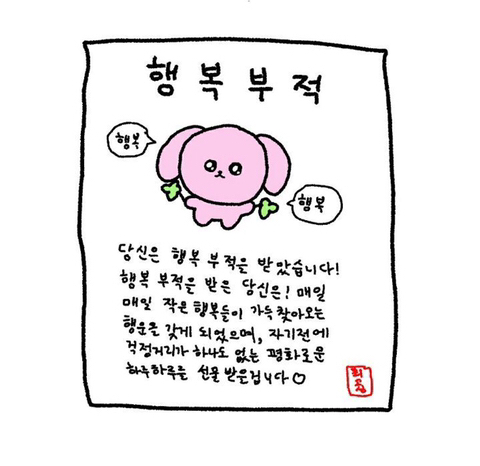 행복부적
행복
행복
당신은 행복 부적을 받았습니다!
행복 부적을 받은 당신은! 매일
매일 작은 행복들이 가득 찾아오는
행운을 갖게 되었으며, 자기전에
걱정거리가 하나도 없는 평화로운
하루하루를 선물 받은겁니다♡